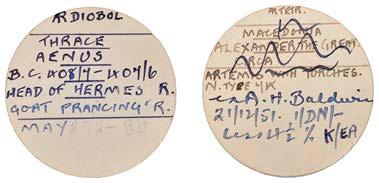 ÆR DIOBOL
THRACE
AENUS
B.C. 408/7-407/6
HEAD OF HERMES R.
GOAT PRANCING R.
MAY 292-30
MACEDONIA
ALEXANDER THE GREAT
ARTEMIS WITH TORCHES.
N. TYPE 4K
ex A. H. Baldwin
21/12/51. 1/DN/-
less 4½% K/EA